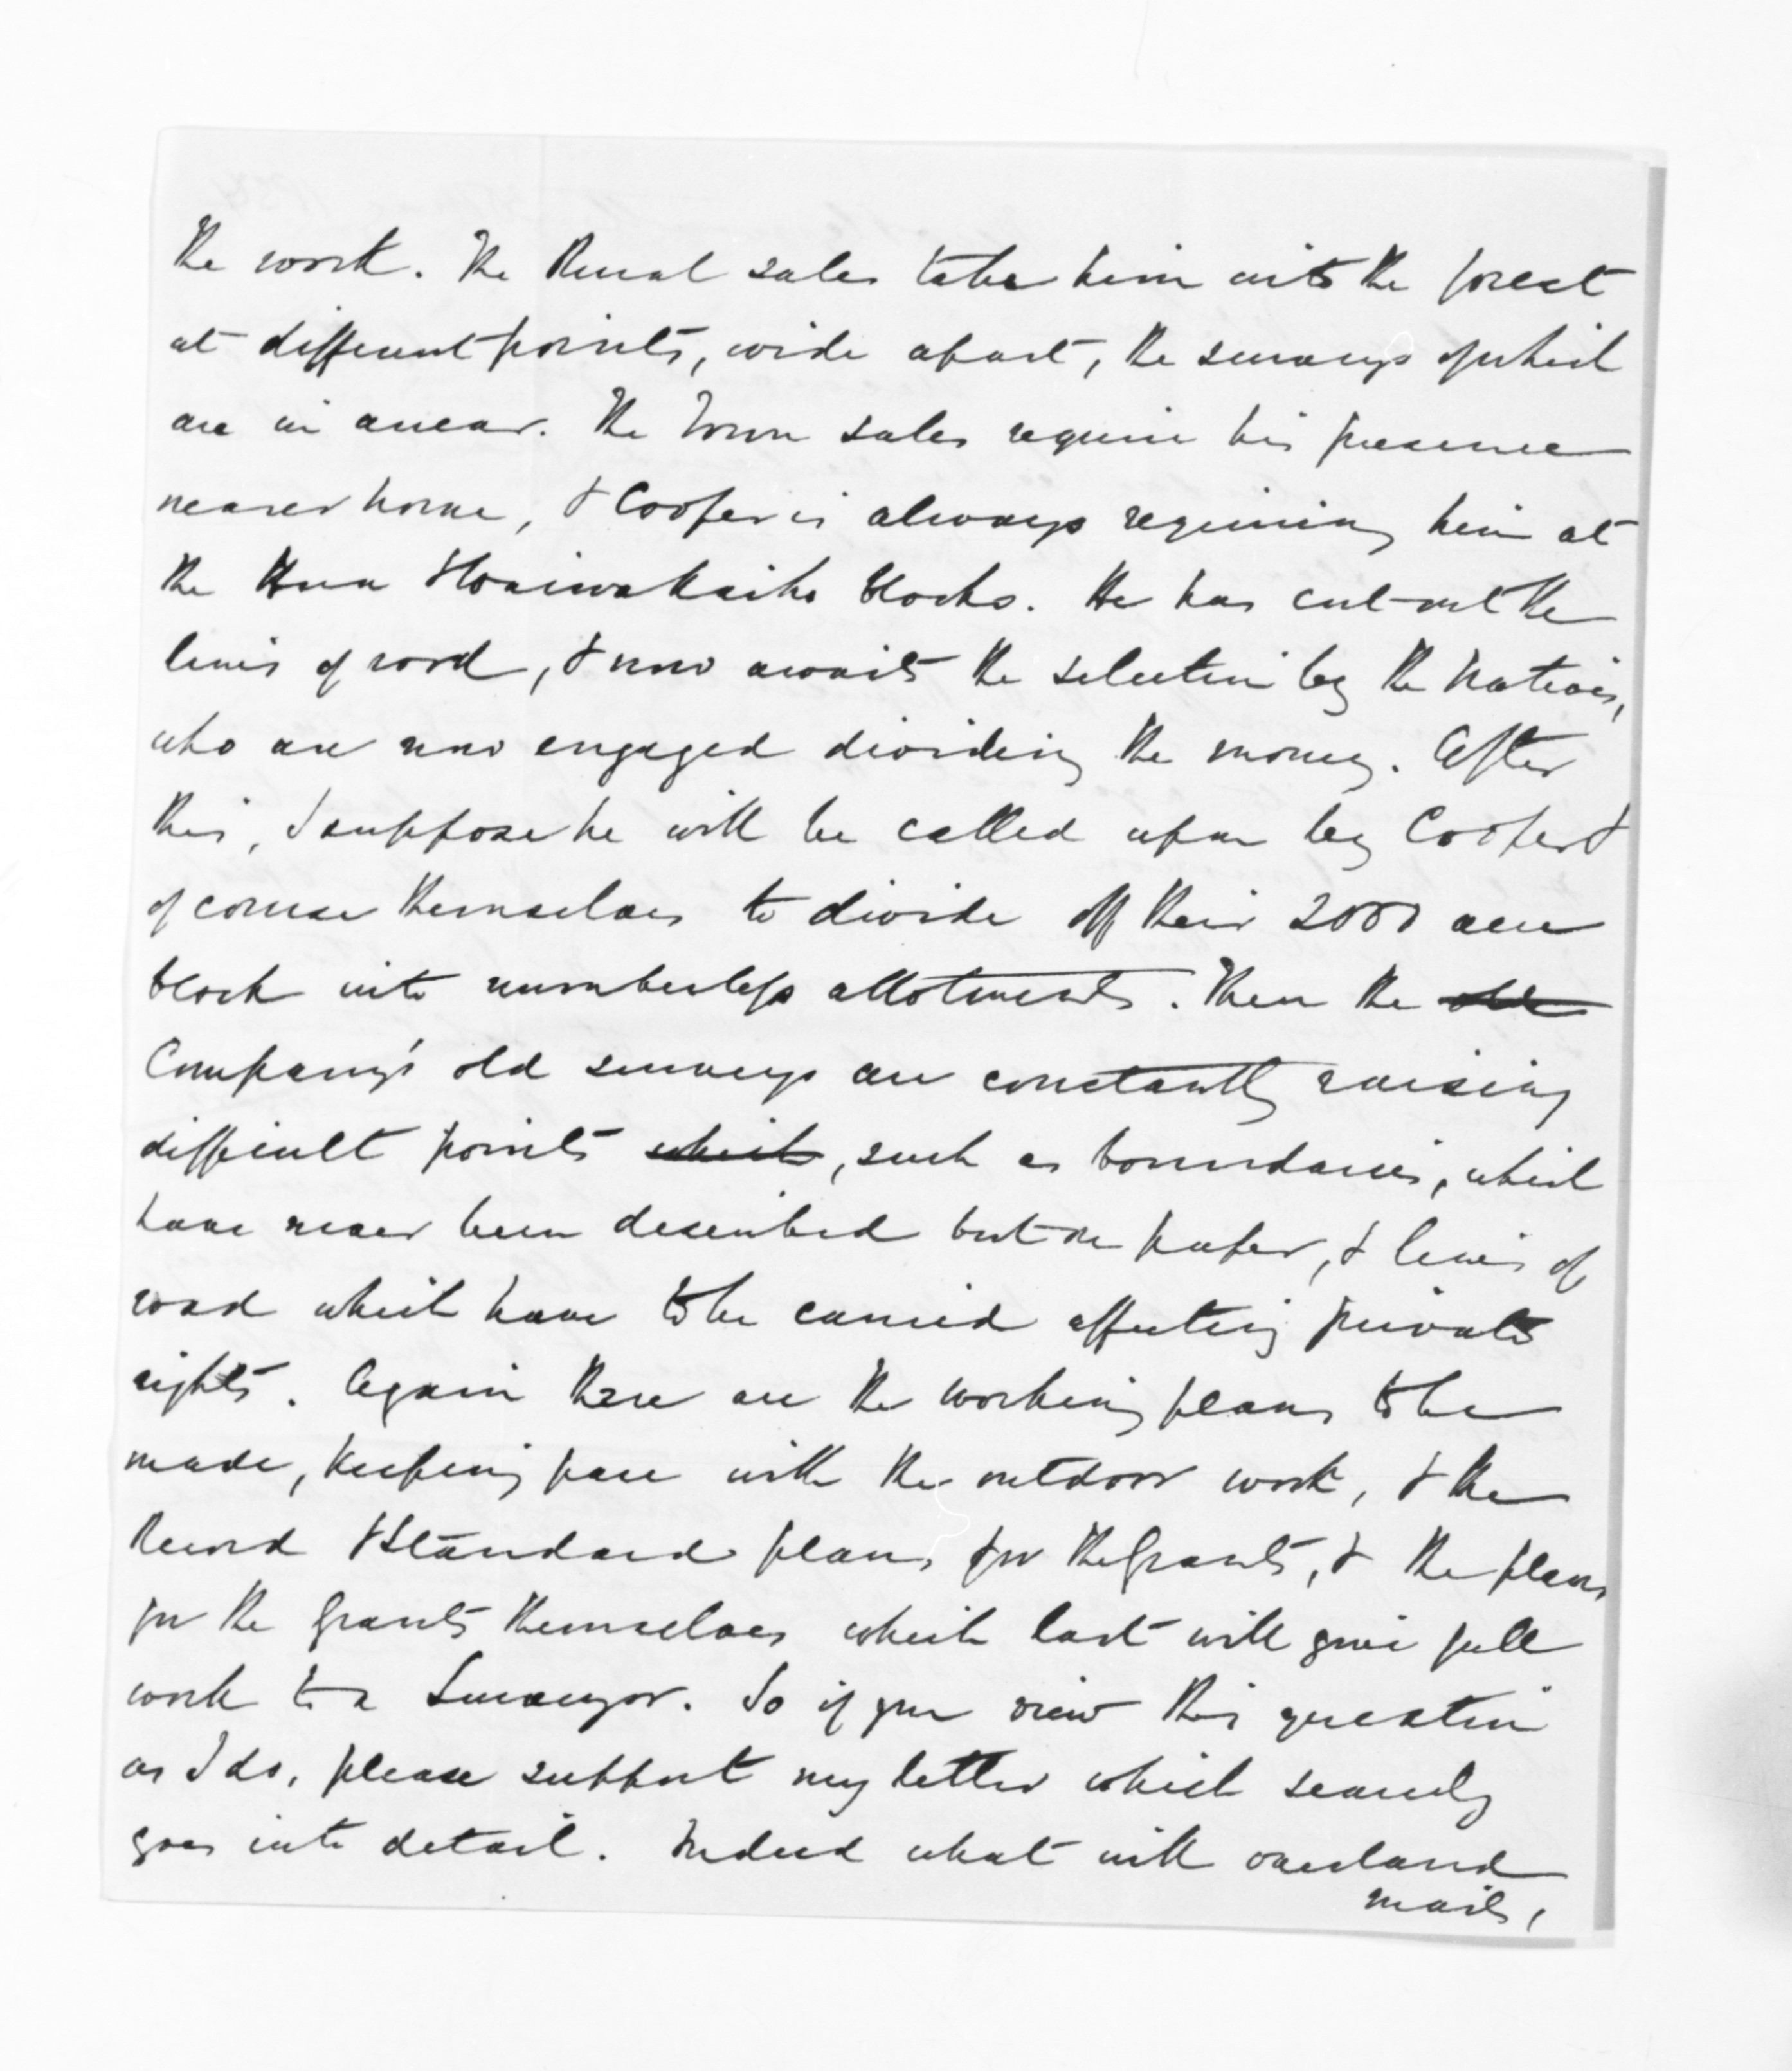 the work. The Rural sales take him into the forest
at different points, wide apart, the surveys of which
are in arrear. The Town sales require his presence
nearer home, & Cooper is always requiring him at
the Hua & Waiwakaiho blocks. He has cut out the
lines of road, & now awaits the selection by the Natives,
who are now engaged dividing the money. After
this, I suppose he will be called upon by Cooper &
of course themselves to divide off their 2000 acre
block into numberless allotments. Then the old
Company's old surveys are constantly raising
difficult points which, such as boundaries, which
have never been described but on paper, & lines of
road which have to be carried affecting private
rights. Again there are the working plans to be
made, keeping pace with the outdoor work, & the
Record & Standard plans for the Grants, & the plans
for the Grants themselves which last will give full
work to a Surveyor. So if you view this question
as I do, please support my letter which scarcely
goes into detail. Indeed what with overland
mails,